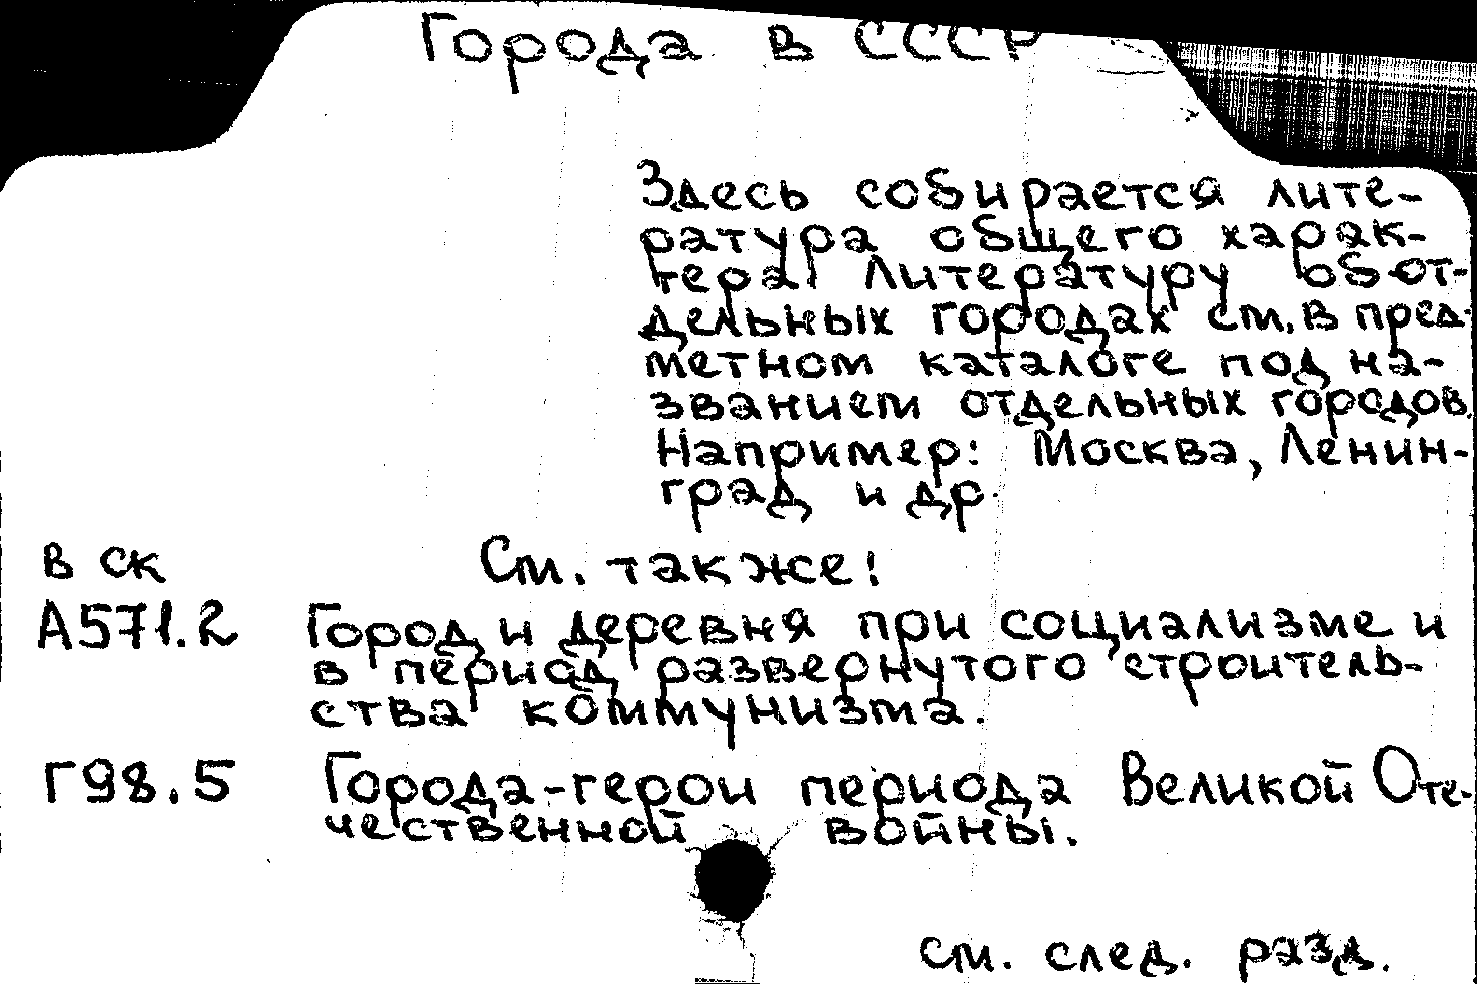 Города в СССР
Здесь собирается лите-
ратура общего харак-
тера. Литературу об от-
дельных городах см. в пред-
метном каталоге под на-
званием отдельных городов.
Например: Москва, Ленин-
град и др.
В СК См. также:
А571.2 Город и деревня при социализме и
в период развернутого строитель-
ства коммунизма.
Г98.5 Города-герои периода Великой Оте-
чественной войны.
см. след. разд.